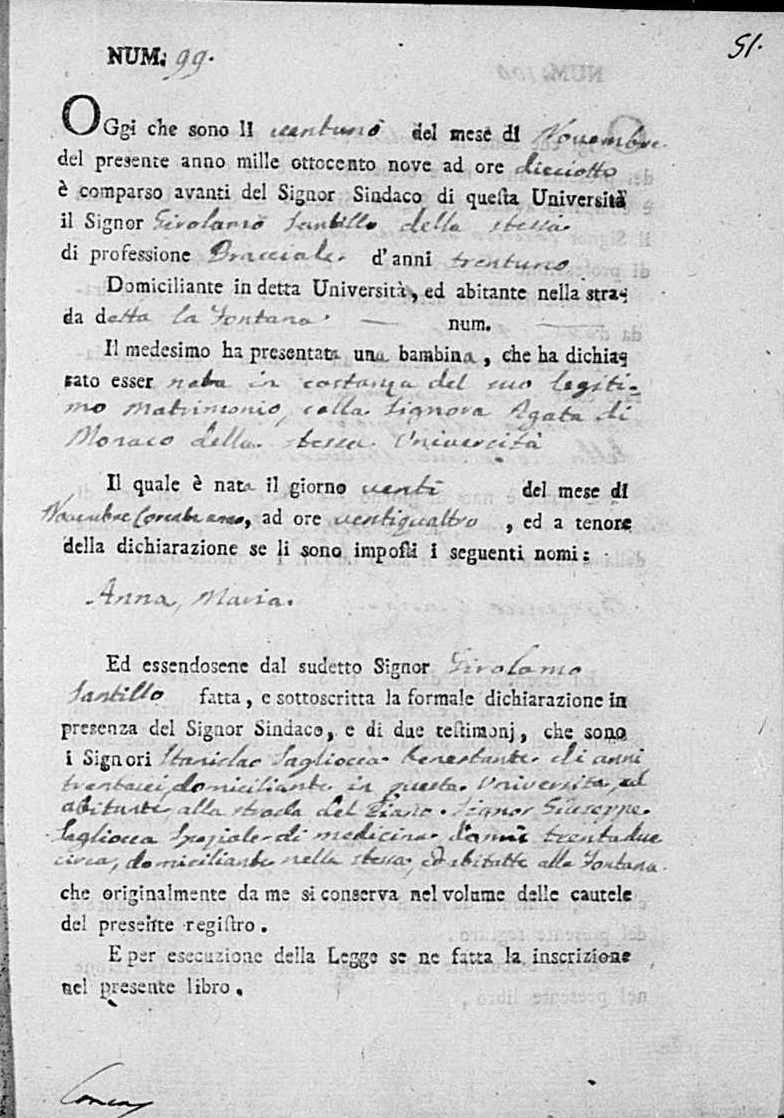 51.
NUM. 99.
OGgi che sono li ventuno del mese di Novembre
del presente anno mille ottocento nove ad ore dicciotto
è comparso avanti del Signor Sindaco di questa Università
il Signor Girolamo Santillo della stessa
di professione Bracciale d'anni trentuno
Domiciliante in detta Università, ed abitante nella stra-
da detta la Fontana — num. —
Il medesimo ha presentata una bambina, che ha dichia-
rato esser nata in costanza del suo legiti-
mo matrimonio, colla Signora Agata di
Monaco della stessa Univercità
Il quale è nata il giorno venti del mese di
Novembre , ad ore ventiquattro , ed a tenore
della dichiarazione se li sono imposti i seguenti nomi:
Anna, Maria.
Ed essendosene dal sudetto Signor Girolamo
Santillo fatta, e sottoscritta la formale dichiarazione in
presenza del Signor Sindaco, e di due testimonj, che sono
i Signori Stanislao Sagliocca benestante di anni
trentasei, domiciliante in questa Università, ed
abitante alla strada del Piano. Signor Giuseppe
Sagliocca Speziale di medicina d'anni trentadue
circa, domiciliante nella stessa, ed abitatte alla Fontana
che originalmente da me si conserva nel volume delle cautele
del presente registro.
E per esecuzione della Legge se ne fatta la inscrizione
nel presente libro.